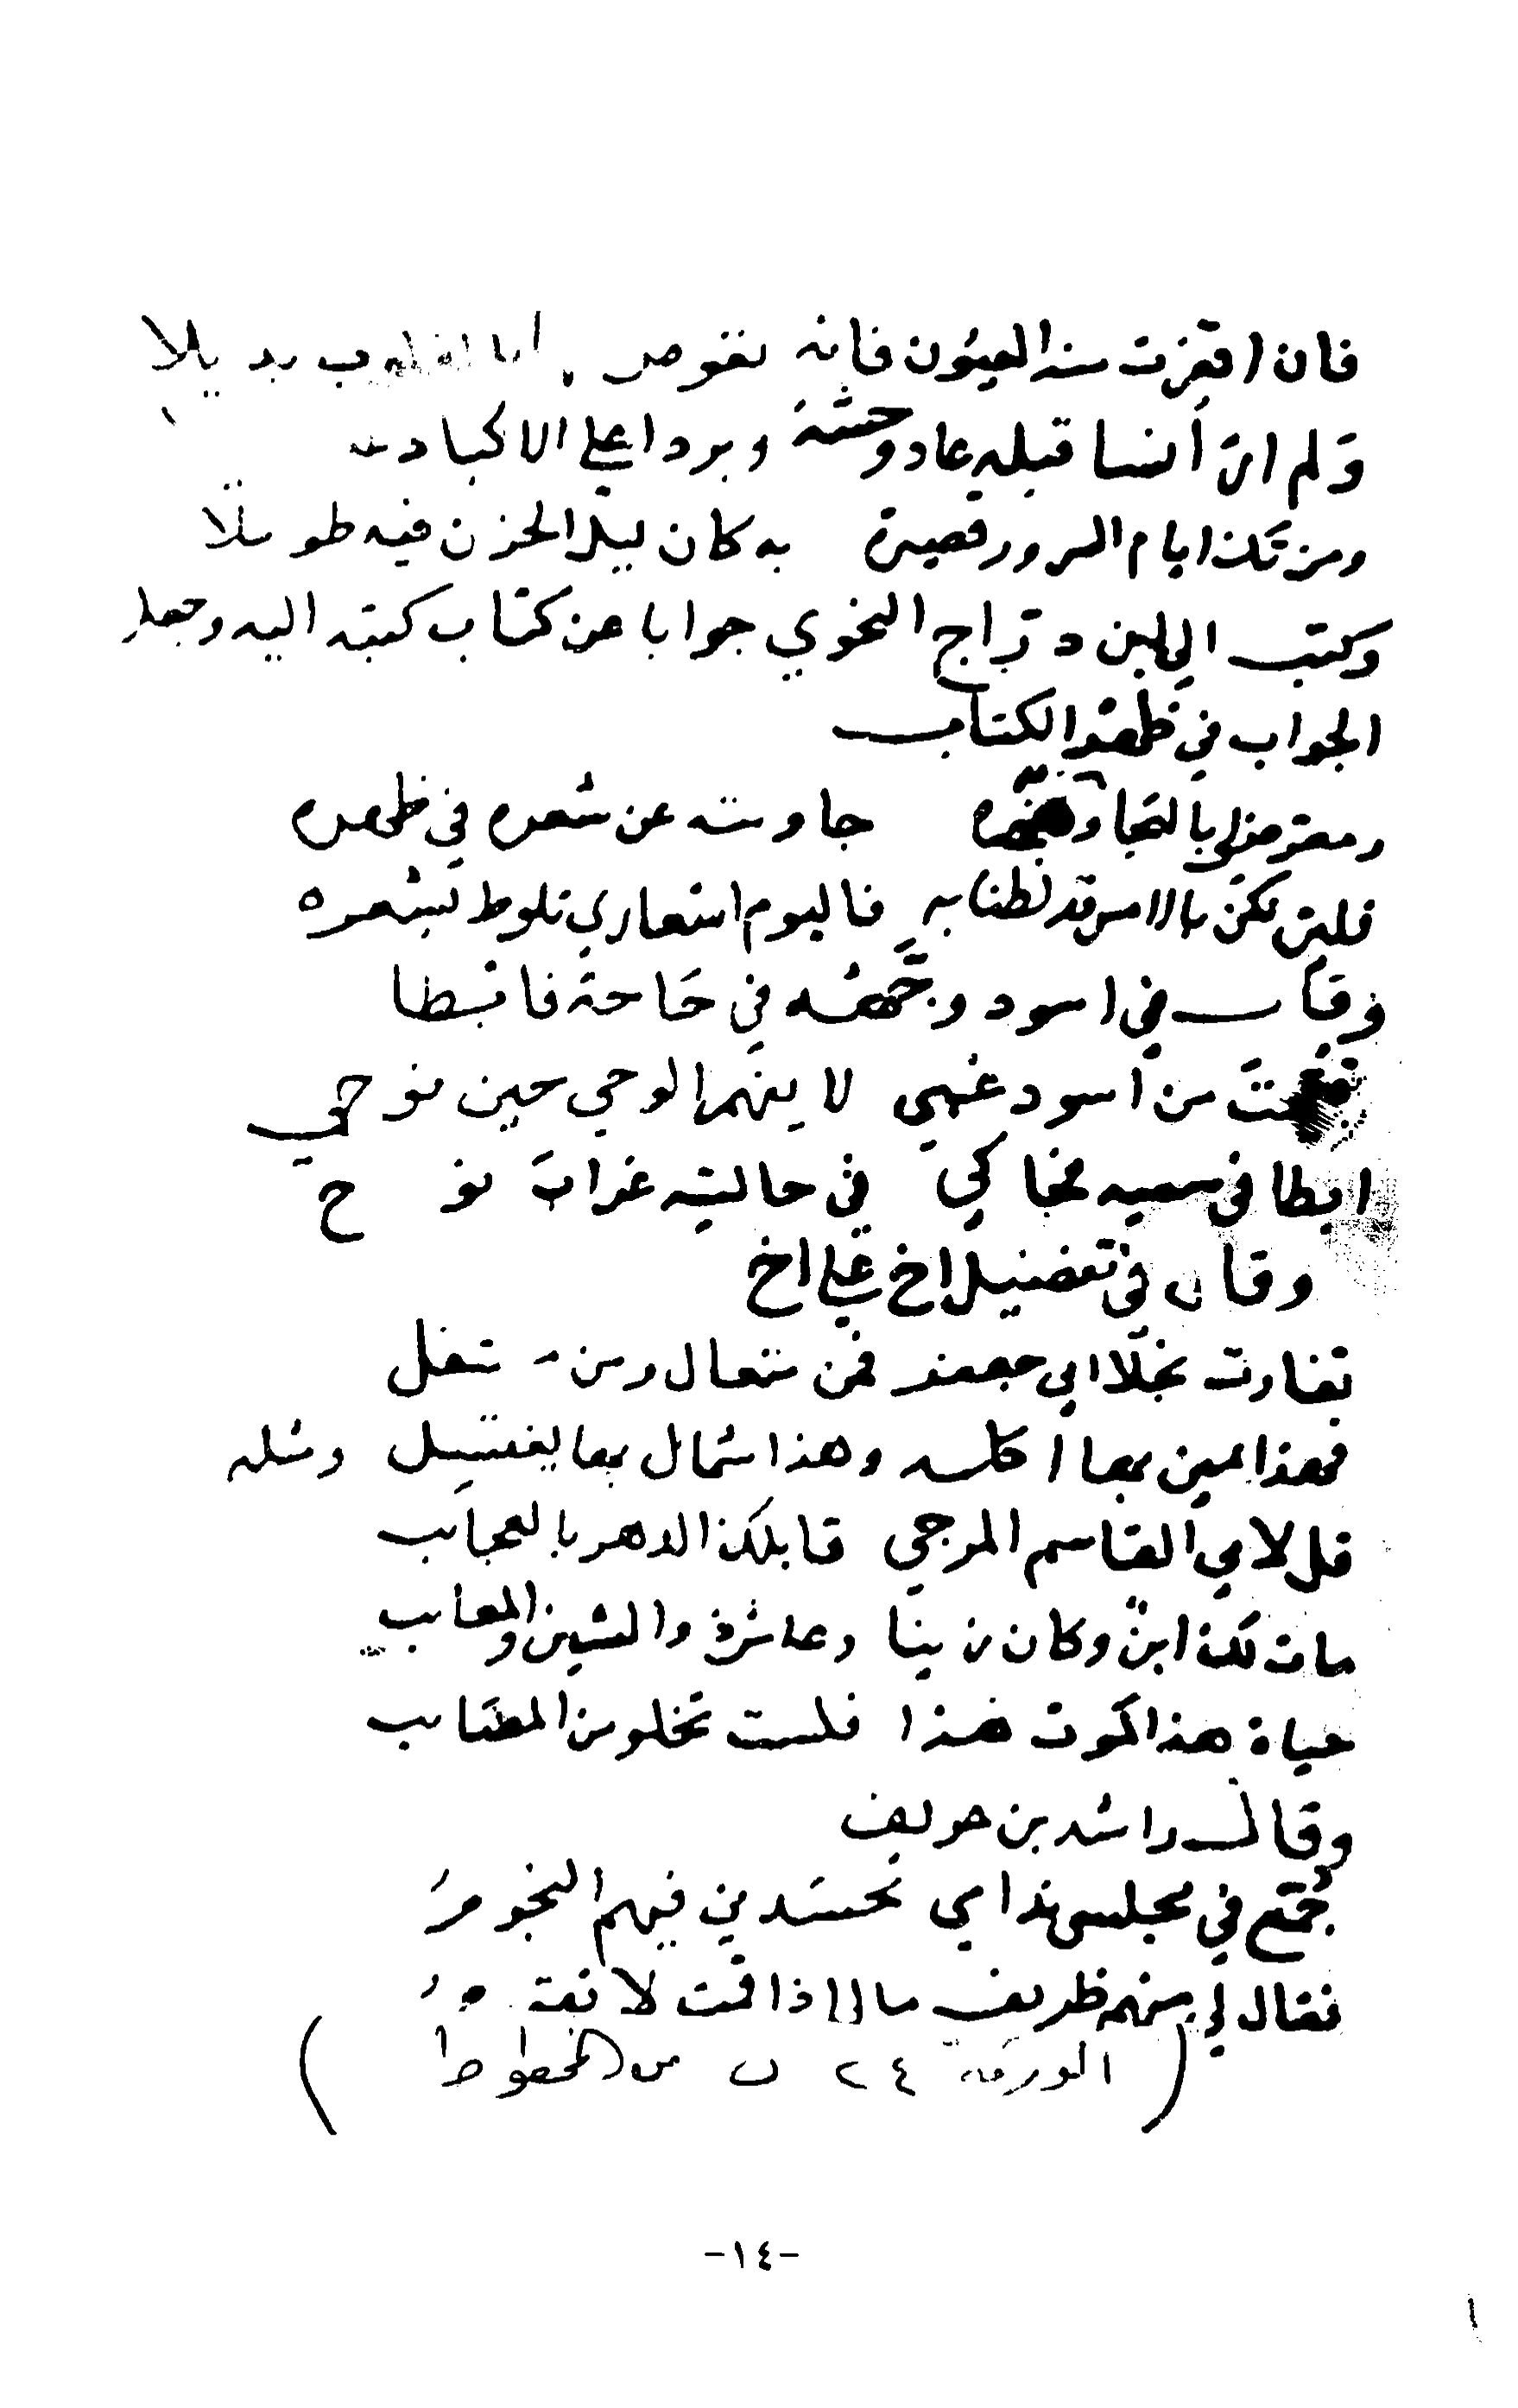 فان اقفرت منه العيون فانه تعوض القلوب بديلا
ولم ار انسا قبله عاد وحشة وبردا علي الاكباد
ومن تك ايام السرور قصيرة به كان ليل الحزن فيه طويلا
وكتب الي ابن دراج النحوي جوابا عن كتاب كتبه اليه وجعل
الجواب في ظهر الكتاب
ومعترض لي بالهجا وهجره جاوبته عن شعره في ظهره
فلئن نكن بالامس قد لطنا به فاليوم اشعاري تلوط بشعره
وقال في اسود وجهه في حاجة فابطا
من اسود غبي لا يفهم الوحي حين نوحي
ابطا في سعيه فحاكي في حالتيه غراب نوح
وقال في تفضيل اخ علي اخ
تفاوت نجلا ابي جعفر فمن متعال ومن متسفل
فهذا يمين بها اكله وهذا شمال بها يغتسل ومثله
قل لابي القاسم المرجي قابلك الدهر بالعجايب
مات لك ابن وكان زينا وعاش ذو الشين والمعايب
حياة هذا كموت هذا فلست تخلو من المصايب
وقال راشد بن
جمع في مجلس ندامي تحسدني فيهم النجوم
فقال لي منهم ظريف مالك اذا قمت لا نقوم
(الورقة ٢٤ ب من المخطوط)
-١٤-